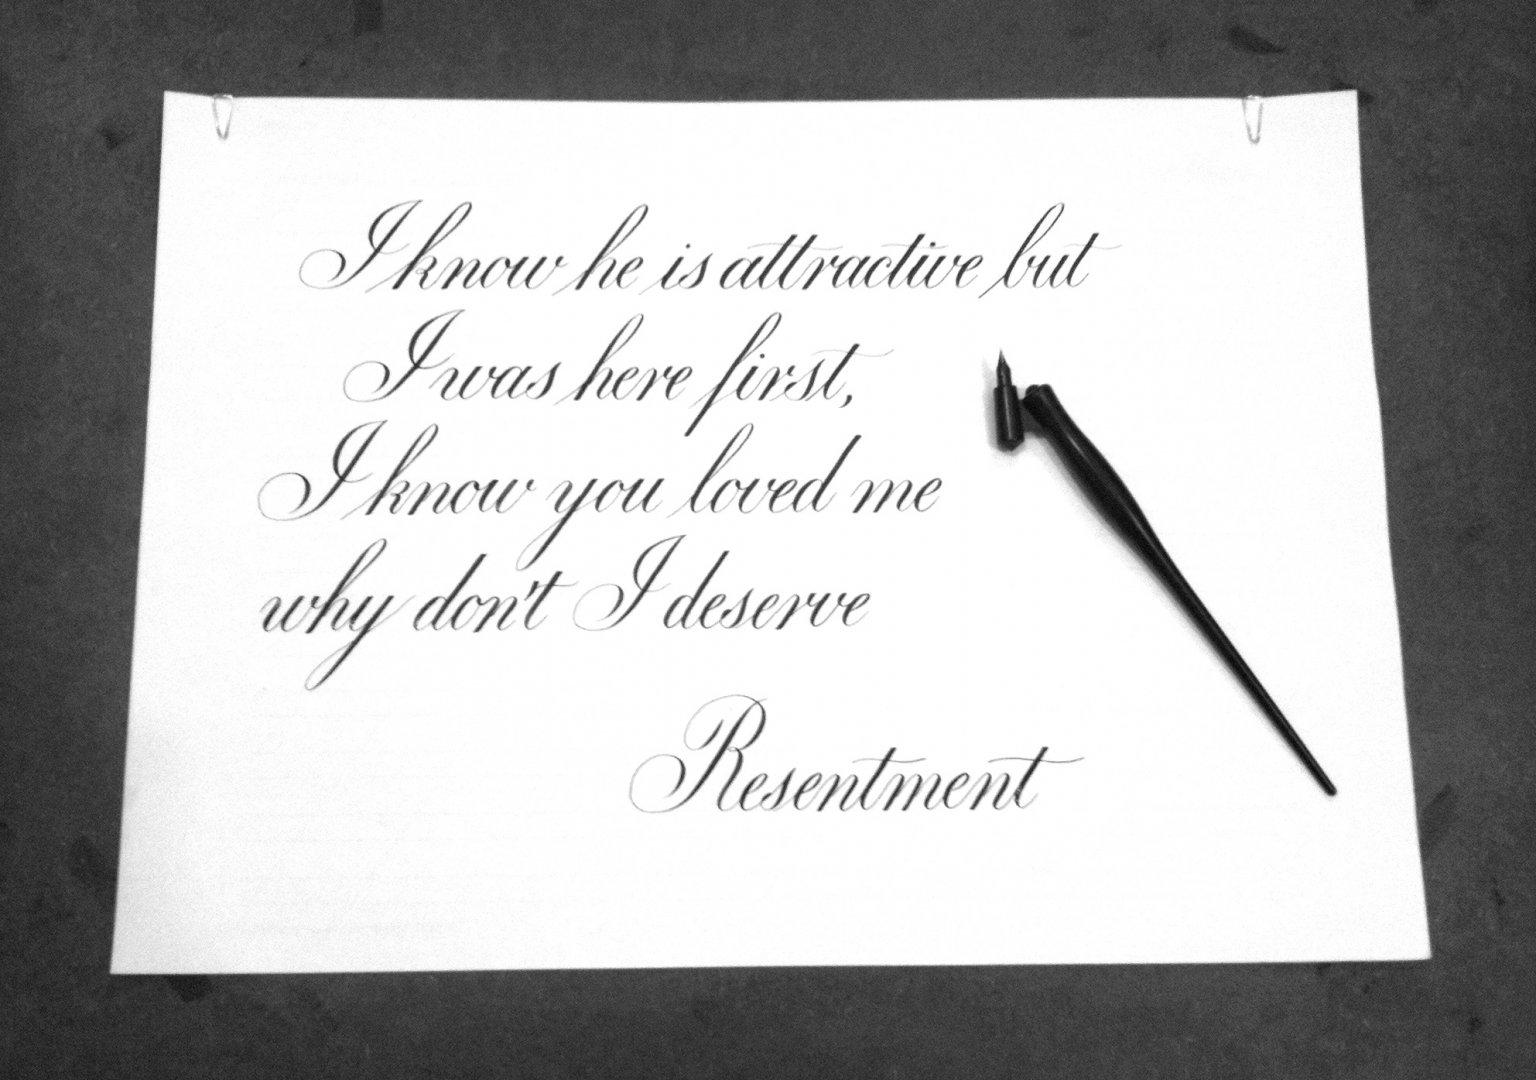 I know he is attractive but
I was here first,
I know you loved me
why don't I deserve
Resentment